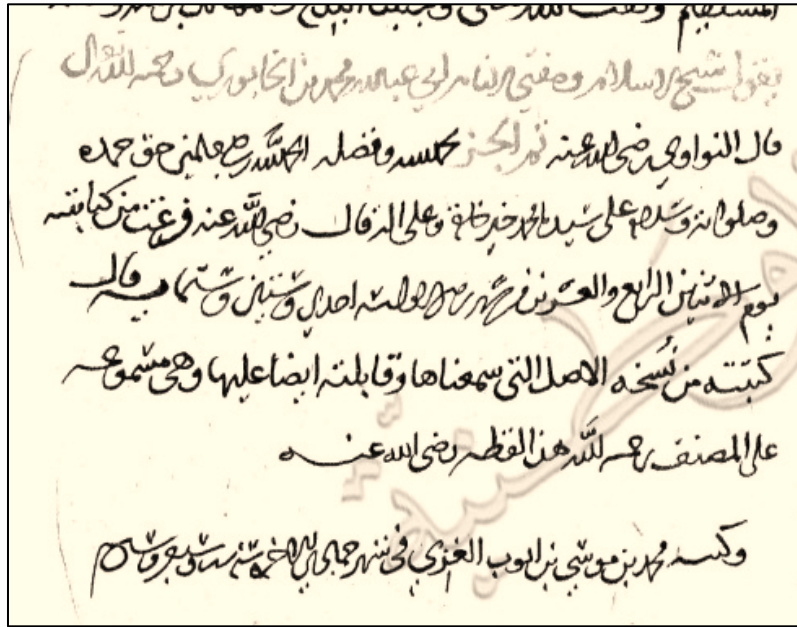 المستقيم
يقول شيخ الاسلام ومفتي الانام ابي عبد الله محمد بن الخابوري رحمه الله تعالى
قال النواوي رضي الله عنه تم الجز بحمد الله وفضله الحمد لله رب العالمين حق حمده
وصلواته وسلامه على سيدنا محمد خير خلقه وعلى اله قال رضي الله عنه فرغت من كتابته
يوم الاثنين الرابع والعشرين من شهر سنه احدى وستين وستمايه قال
كتبته من نسخه الاصل التي سمعناها وقابلته ايضا عليها وهي مسموعه
على المصنف رحمه الله هذا لفظه رضي الله عنه
وكتبه محمد بن موسى بن ايوب الغزي في شهر جمادى الاخره سنه